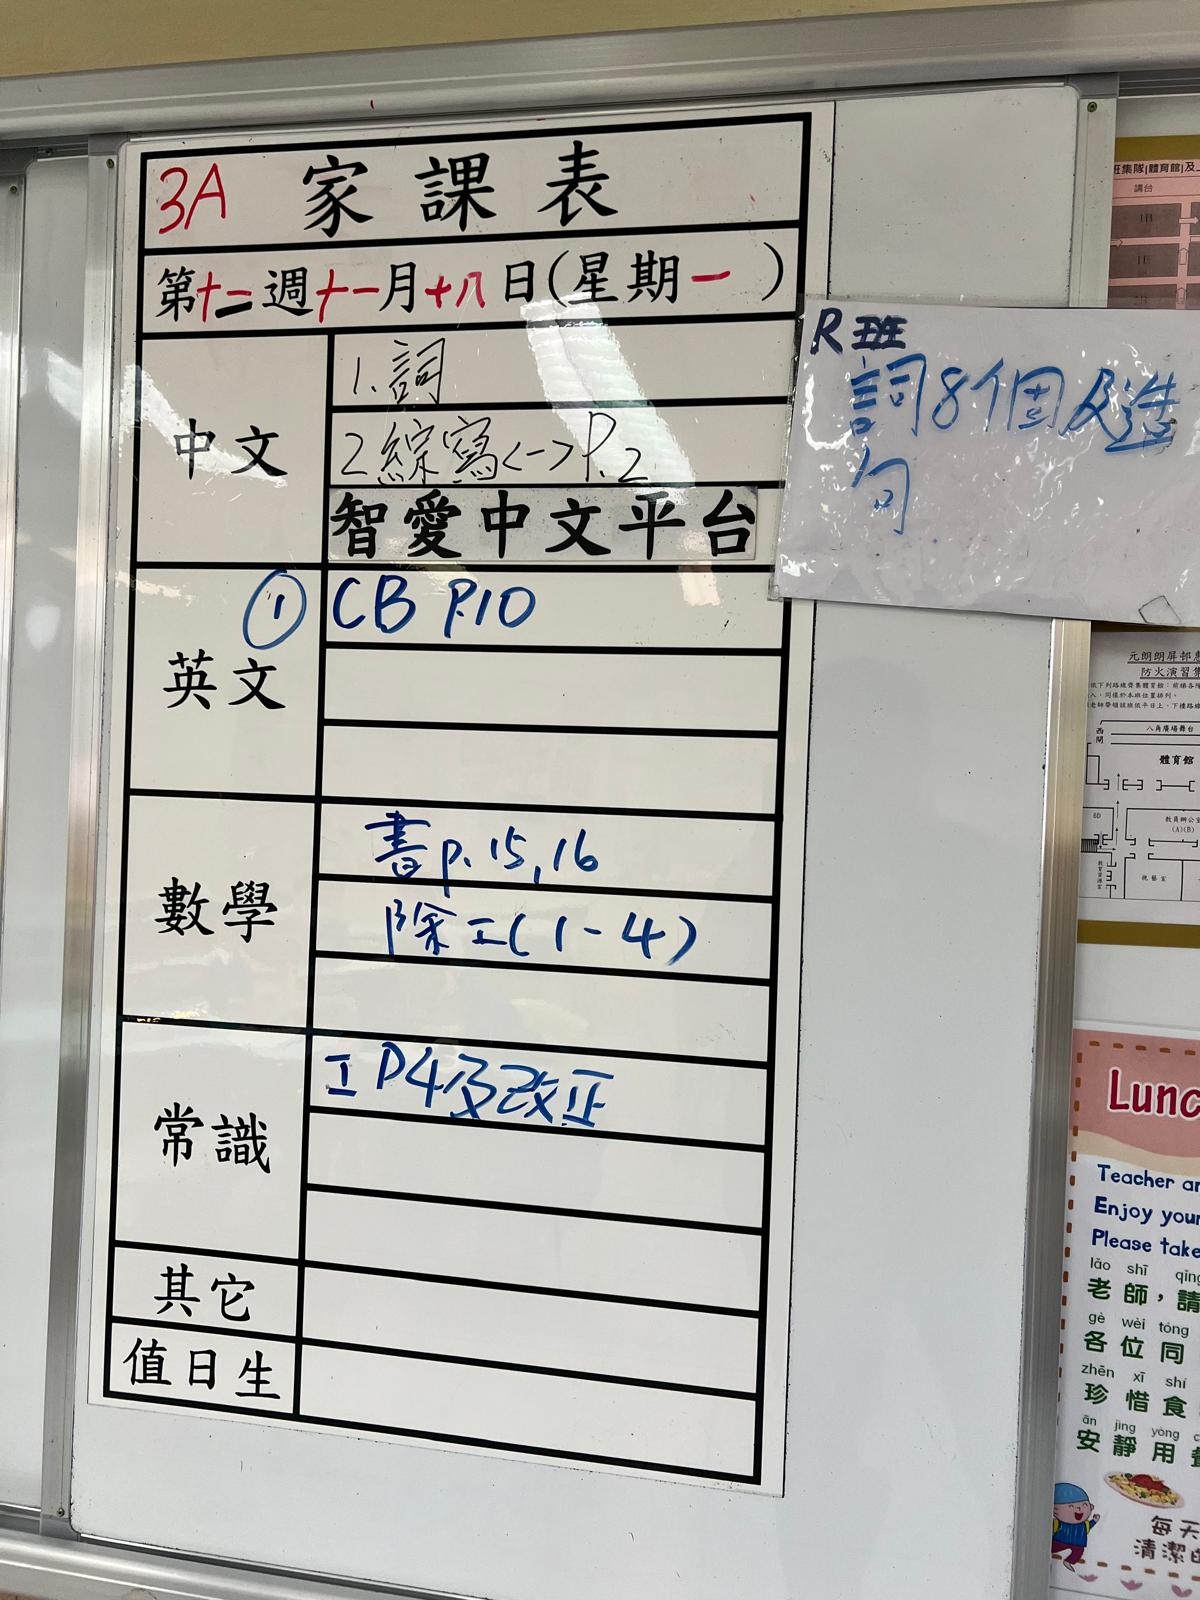 3A 家課表
第十二週十一月十八日(星期一)
中文
1.詞
2.綜寫<一>P.2
智愛中文平台
R班
詞8個及造
句
英文
① CB P.10
數學
書p.15,16
除工(1-4)
常識
工P4及改正
其它
值日生
講台
防火演習
八角廣場舞台
西閘
體育館
6D
(A)(B)
視藝室
Lunc
Teacher
Enjoy your
Please take
lǎo shī qǐng
老師，請
gè wèi tóng
各位同
zhēn xī shí
珍惜食
ān jìng yòng
安靜用
每天
清潔